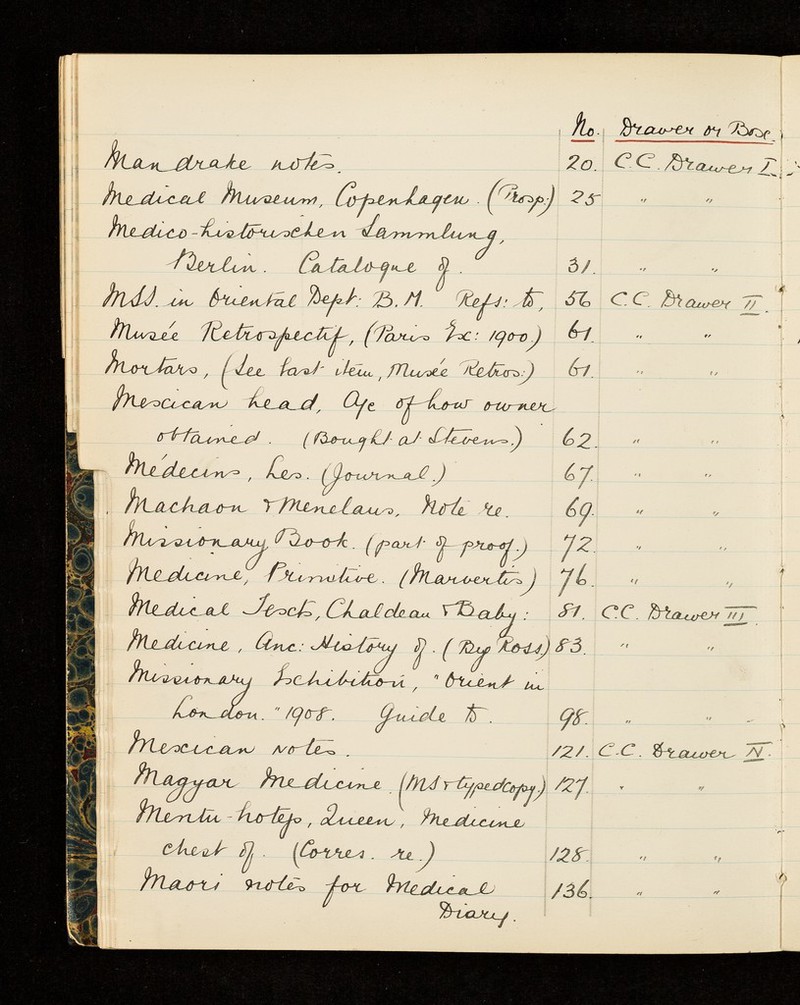 No. Drawer or Box.
Mandrake notes. 20. C.C. Drawer I.
Medical Museum, Copenhagen. (Prosp:) 25 " "
Medico-historischen Sammlung,
Berlin. Catalogue of. 31. " "
MSS. in Oriental Dept: B.M. Refs: to, 56 C.C. Drawer II.
Musée Retrospectif, (Paris Ex: 1900) 61. " "
Mortars, (See last item, Musée Retros:) 61. " "
Mexican head, A/c of how owner
obtained. (Bought at Stevens.) 62. " "
Médecins, Les. (Journal.) 67. " "
Machaon & Menelaus, Note re. 69. " "
Missionary Book. (part of proof.) 72. " "
Medicine, Primitive. (Marvertis) 76. " "
Medical Texts, Chaldean & Baby: 81. C.C. Drawer III.
Medicine, Anc: History of. (By Ross) 83. " "
Missionary Exhibition, "Orient in
London." 1908. Guide to. 98. " "
Mexican Notes. 121. C.C. Drawer IV.
Magyar Medicine. (MS & typed copy.) 127. " "
Mentu-hoteps, Queen, Medicine
chest of. (Corres. re.) 128. " "
Maori notes for Medical 136. " "
Diary.